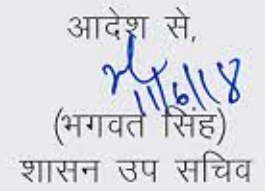 आदेश से,
11/6/18
(भगवत सिंह)
शासन उप सचिव